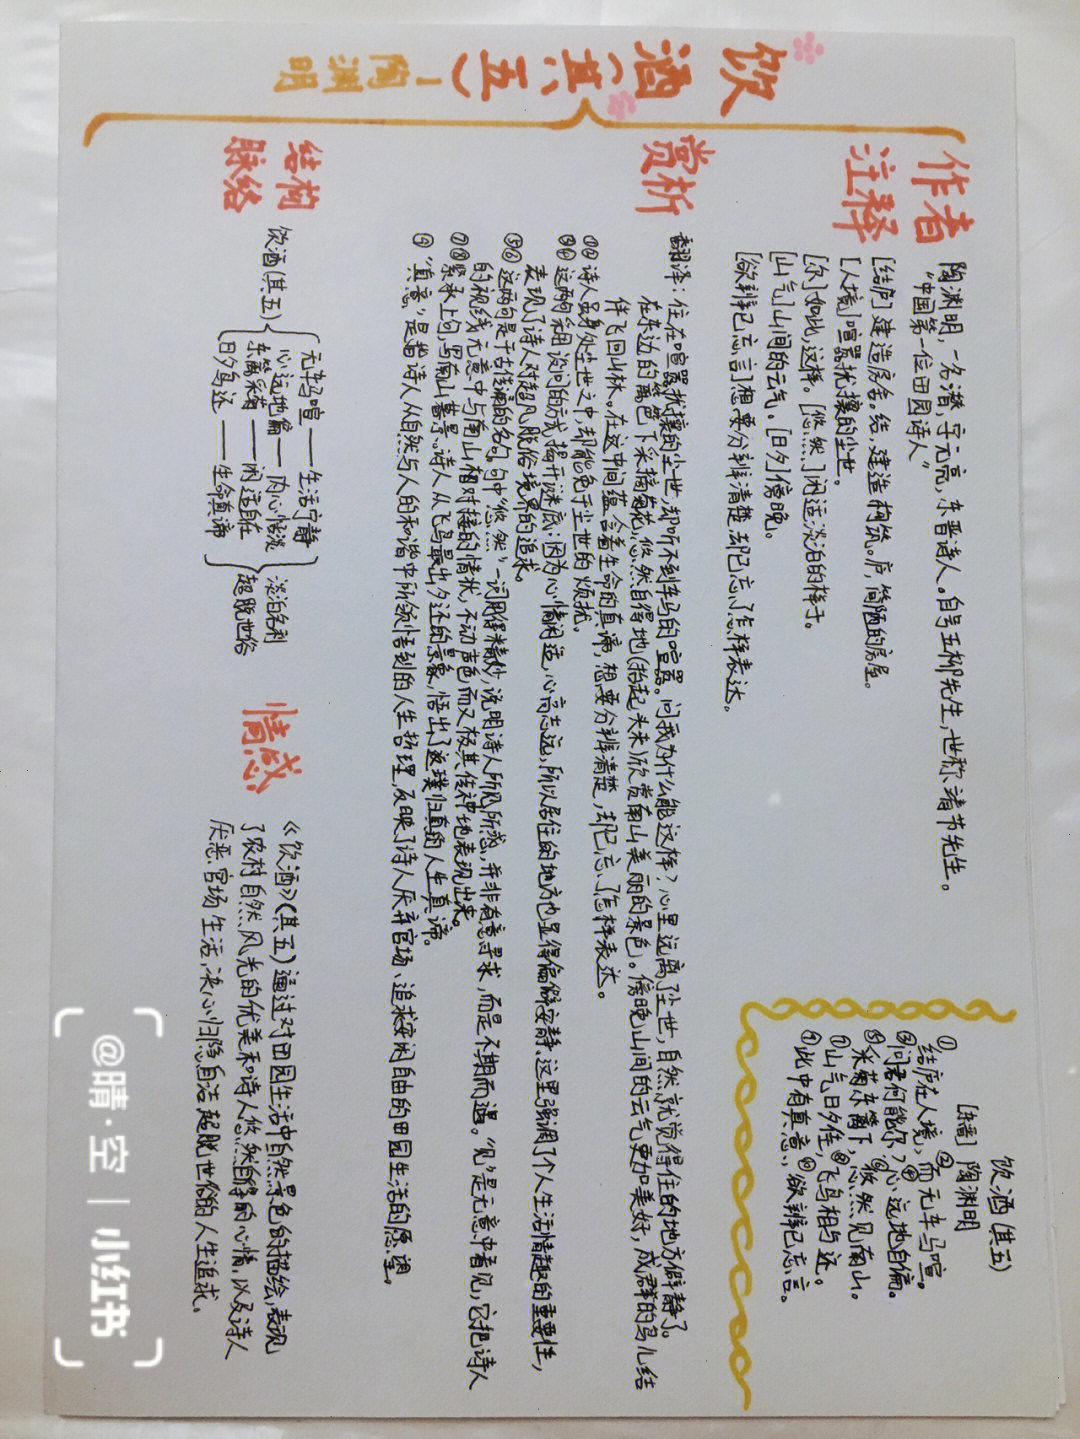 饮酒(其五)—陶渊明
作者
陶渊明,一名潜,字元亮,东晋诗人。自号五柳先生,世称靖节先生。
“中国第一位田园诗人”
注释
[结庐]建造房舍。结,建造构筑。庐,简陋的房屋。
[人境]喧嚣扰攘的尘世。
[尔]如此,这样。[悠然]闲适淡泊的样子。
[山气]山间的云气。[日夕]傍晚。
[欲辨已忘言]想要分辨清楚,却已忘了怎样表达。
饮酒(其五)
[东晋]陶渊明
①结庐在人境,②而无车马喧。
③问君何能尔?④心远地自偏。
⑤采菊东篱下,⑥悠然见南山。
⑦山气日夕佳,⑧飞鸟相与还。
⑨此中有真意,⑩欲辨已忘言。
赏析
翻译:住在喧嚣扰攘的尘世,却听不到车马的喧嚣。问我为什么能这样?心里远离了尘世,自然就觉得住的地方僻静了。
在东边的篱笆下采摘菊花,悠然自得地(抬起头来)欣赏南山美丽的景色。傍晚山间的云气更加美好,成群的鸟儿结
伴飞回山林。在这中间蕴含着生命的真谛,想要分辨清楚,却已忘了怎样表达。
①②诗人虽身处尘世之中,却能免于尘世的烦扰。
③④这两句采用设问的方式揭开谜底:因为心情闲适,心高志远,所以居住的地方也显得偏僻安静。这里强调了个人生活情趣的重要性,
表现了诗人对超凡脱俗境界的追求。
⑤⑥这两句是千古传诵的名句。句中“悠然”一词用得精妙,说明诗人所见所感,并非有意寻求,而是不期而遇。“见”是无意中看见,它把诗人
的视线无意中与南山相对接的情状,不动声色而又极其传神地表现出来。
⑦⑧紧承上句,写南山暮景。诗人从飞鸟晨出夕还的景象,悟出了返璞归真的人生真谛。
⑨“真意”是指诗人从自然与人的和谐中所领悟到的人生哲理,反映了诗人厌弃官场、追求安闲自由的田园生活的愿望。
结构
脉络
饮酒(其五)
无车马喧——生活宁静
心远地偏——内心恬淡
东篱采菊——闲适自在
日夕鸟还——生命真谛
淡泊名利
超脱世俗
情感
《饮酒》(其五)通过对田园生活中自然景色的描绘,表现
了农村自然风光的优美和诗人悠然自得的心情,以及诗人
厌恶官场生活,决心归隐自洁、超脱世俗的人生追求。
@晴·空 | 小红书